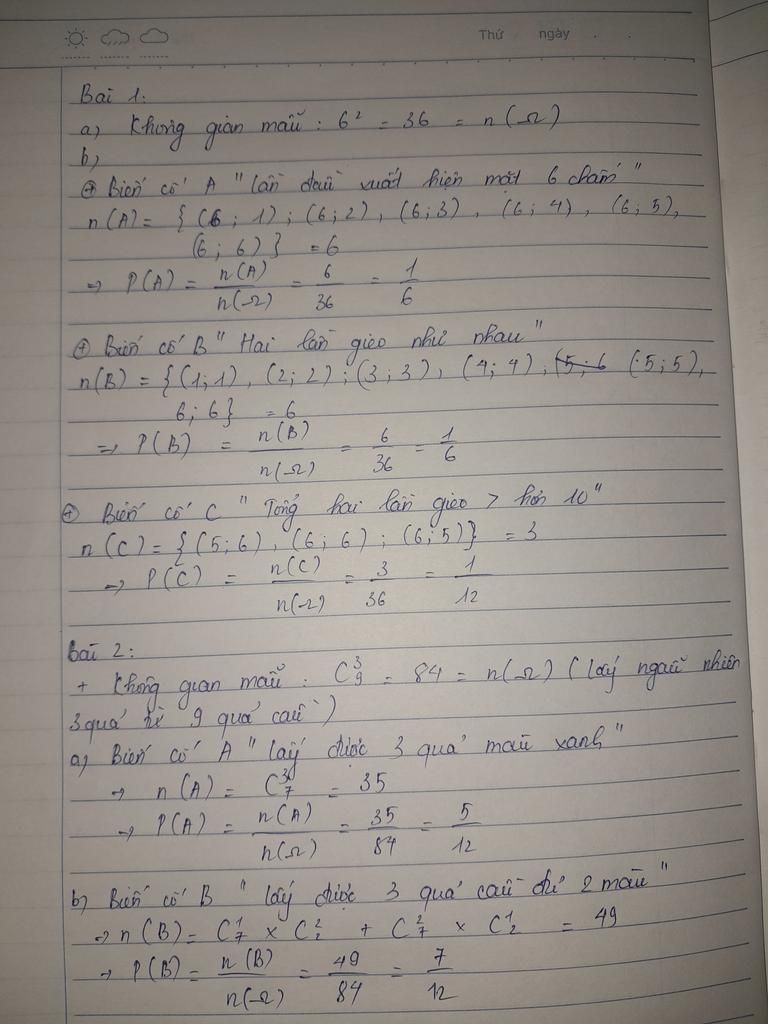 Thứ ngày
Bài 1:
a, Không gian mẫu : 6² = 36 = n(Ω)
b,
+ Biến cố A "lần đầu xuất hiện mặt 6 chấm"
n(A) = { (6 ; 1) ; (6 ; 2) , (6 ; 3) , (6 ; 4) , (6 ; 5),
(6 ; 6) } = 6
⇒ P(A) = n(A)/n(Ω) = 6/36 = 1/6
+ Biến cố B " Hai lần gieo như nhau "
n(B) = {(1 ; 1) , (2 ; 2) ; (3 ; 3) , (4 ; 4) , (5 ; 6 (5 ; 5),
6 ; 6} = 6
⇒ P(B) = n(B)/n(Ω) = 6/36 = 1/6
+ Biến cố C " Tổng hai lần gieo > hơn 10"
n(C) = {(5 ; 6) , (6 ; 6) ; (6 ; 5)} = 3
⇒ P(C) = n(C)/n(Ω) = 3/36 = 1/12
Bài 2:
+ Không gian mẫu : C³₉ = 84 = n(Ω) ( lấy ngẫu nhiên
3 quả từ 9 quả cầu )
a) Biến cố A " lấy được 3 quả màu xanh"
→ n(A) = C³₇ = 35
→ P(A) = n(A)/n(Ω) = 35/84 = 5/12
b) Biến cố B " lấy được 3 quả cầu đủ 2 màu "
→ n(B) = C¹₇ × C²₂ + C²₇ × C¹₂ = 49
→ P(B) = n(B)/n(Ω) = 49/84 = 7/12